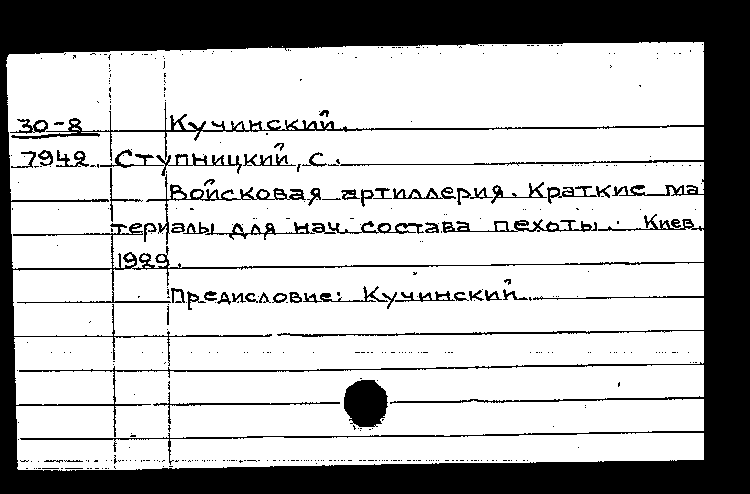 30-8 Кучинский.
7942 Ступницкий, С.
Войсковая артиллерия. Краткие ма
териалы для нач. состава пехоты. Киев,
1929.
Предисловие: Кучинский